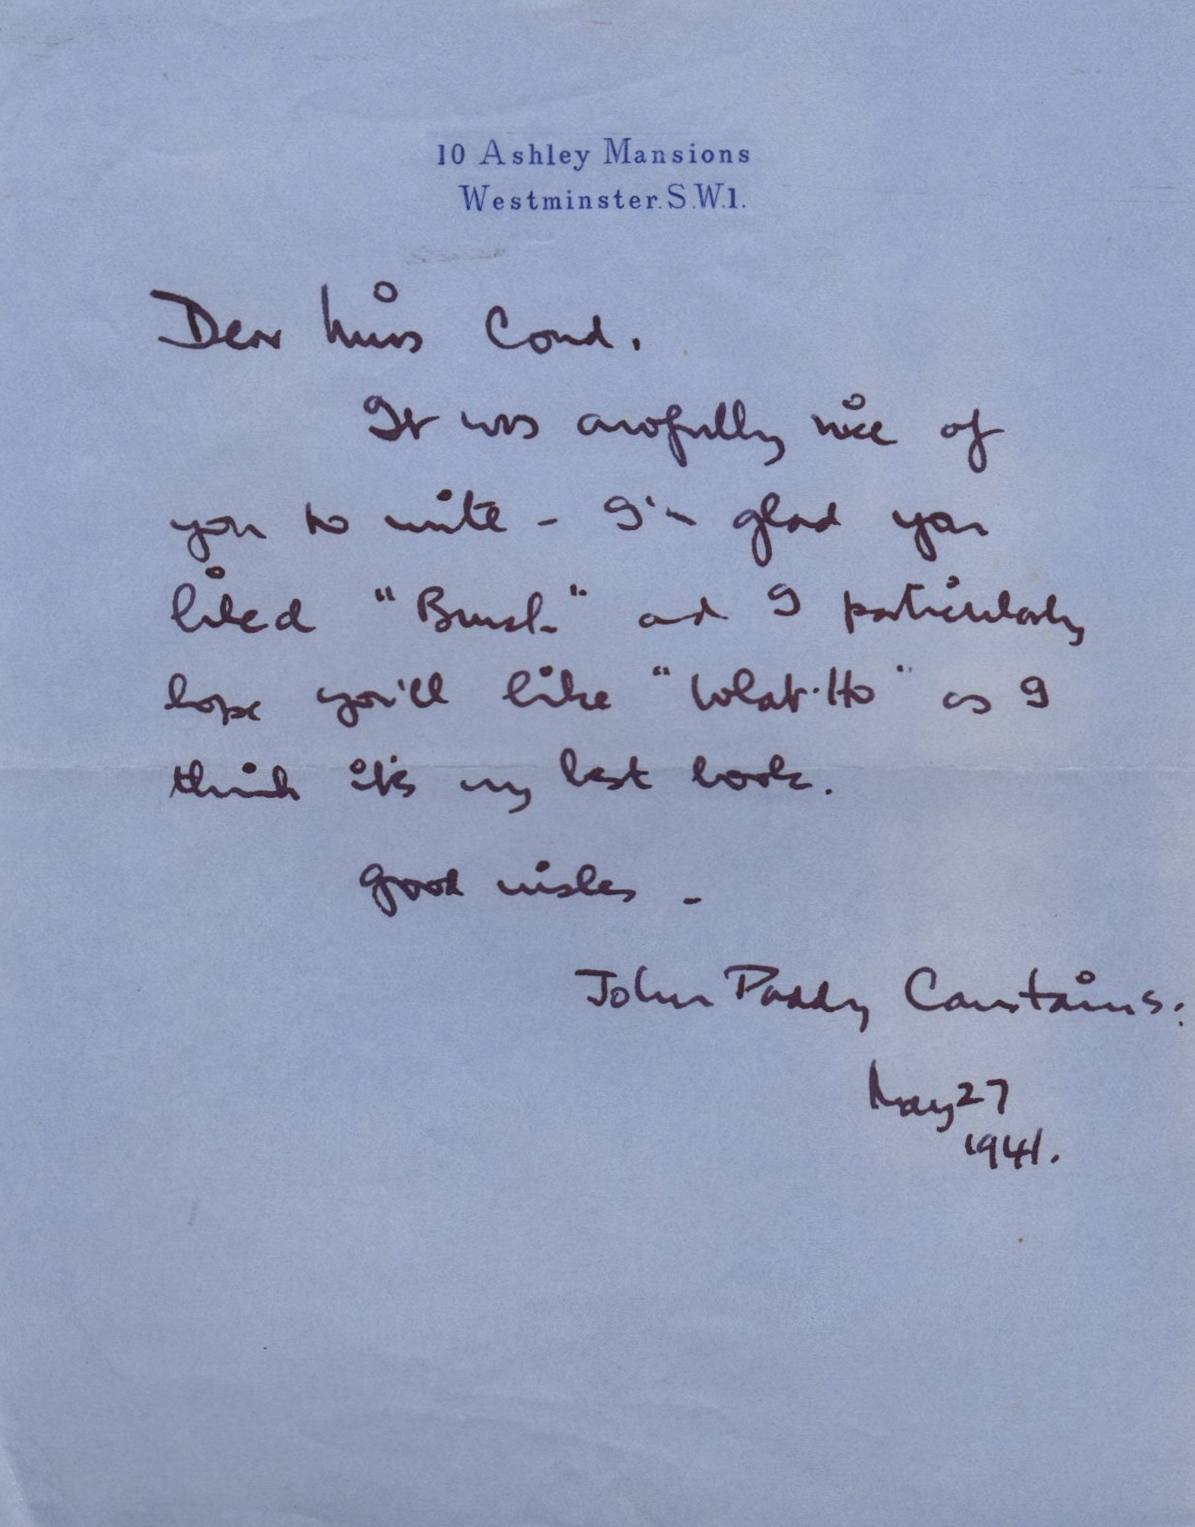 10 Ashley Mansions
Westminster. S.W.1.
Dear Miss Cond.
It was awfully nice of
you to write - I'm glad you
liked "Brush" and I particularly
hope you'll like "What-Ho" as I
think it's my best book.
Good wishes -
John Paddy Carstairs.
May 27
1941.